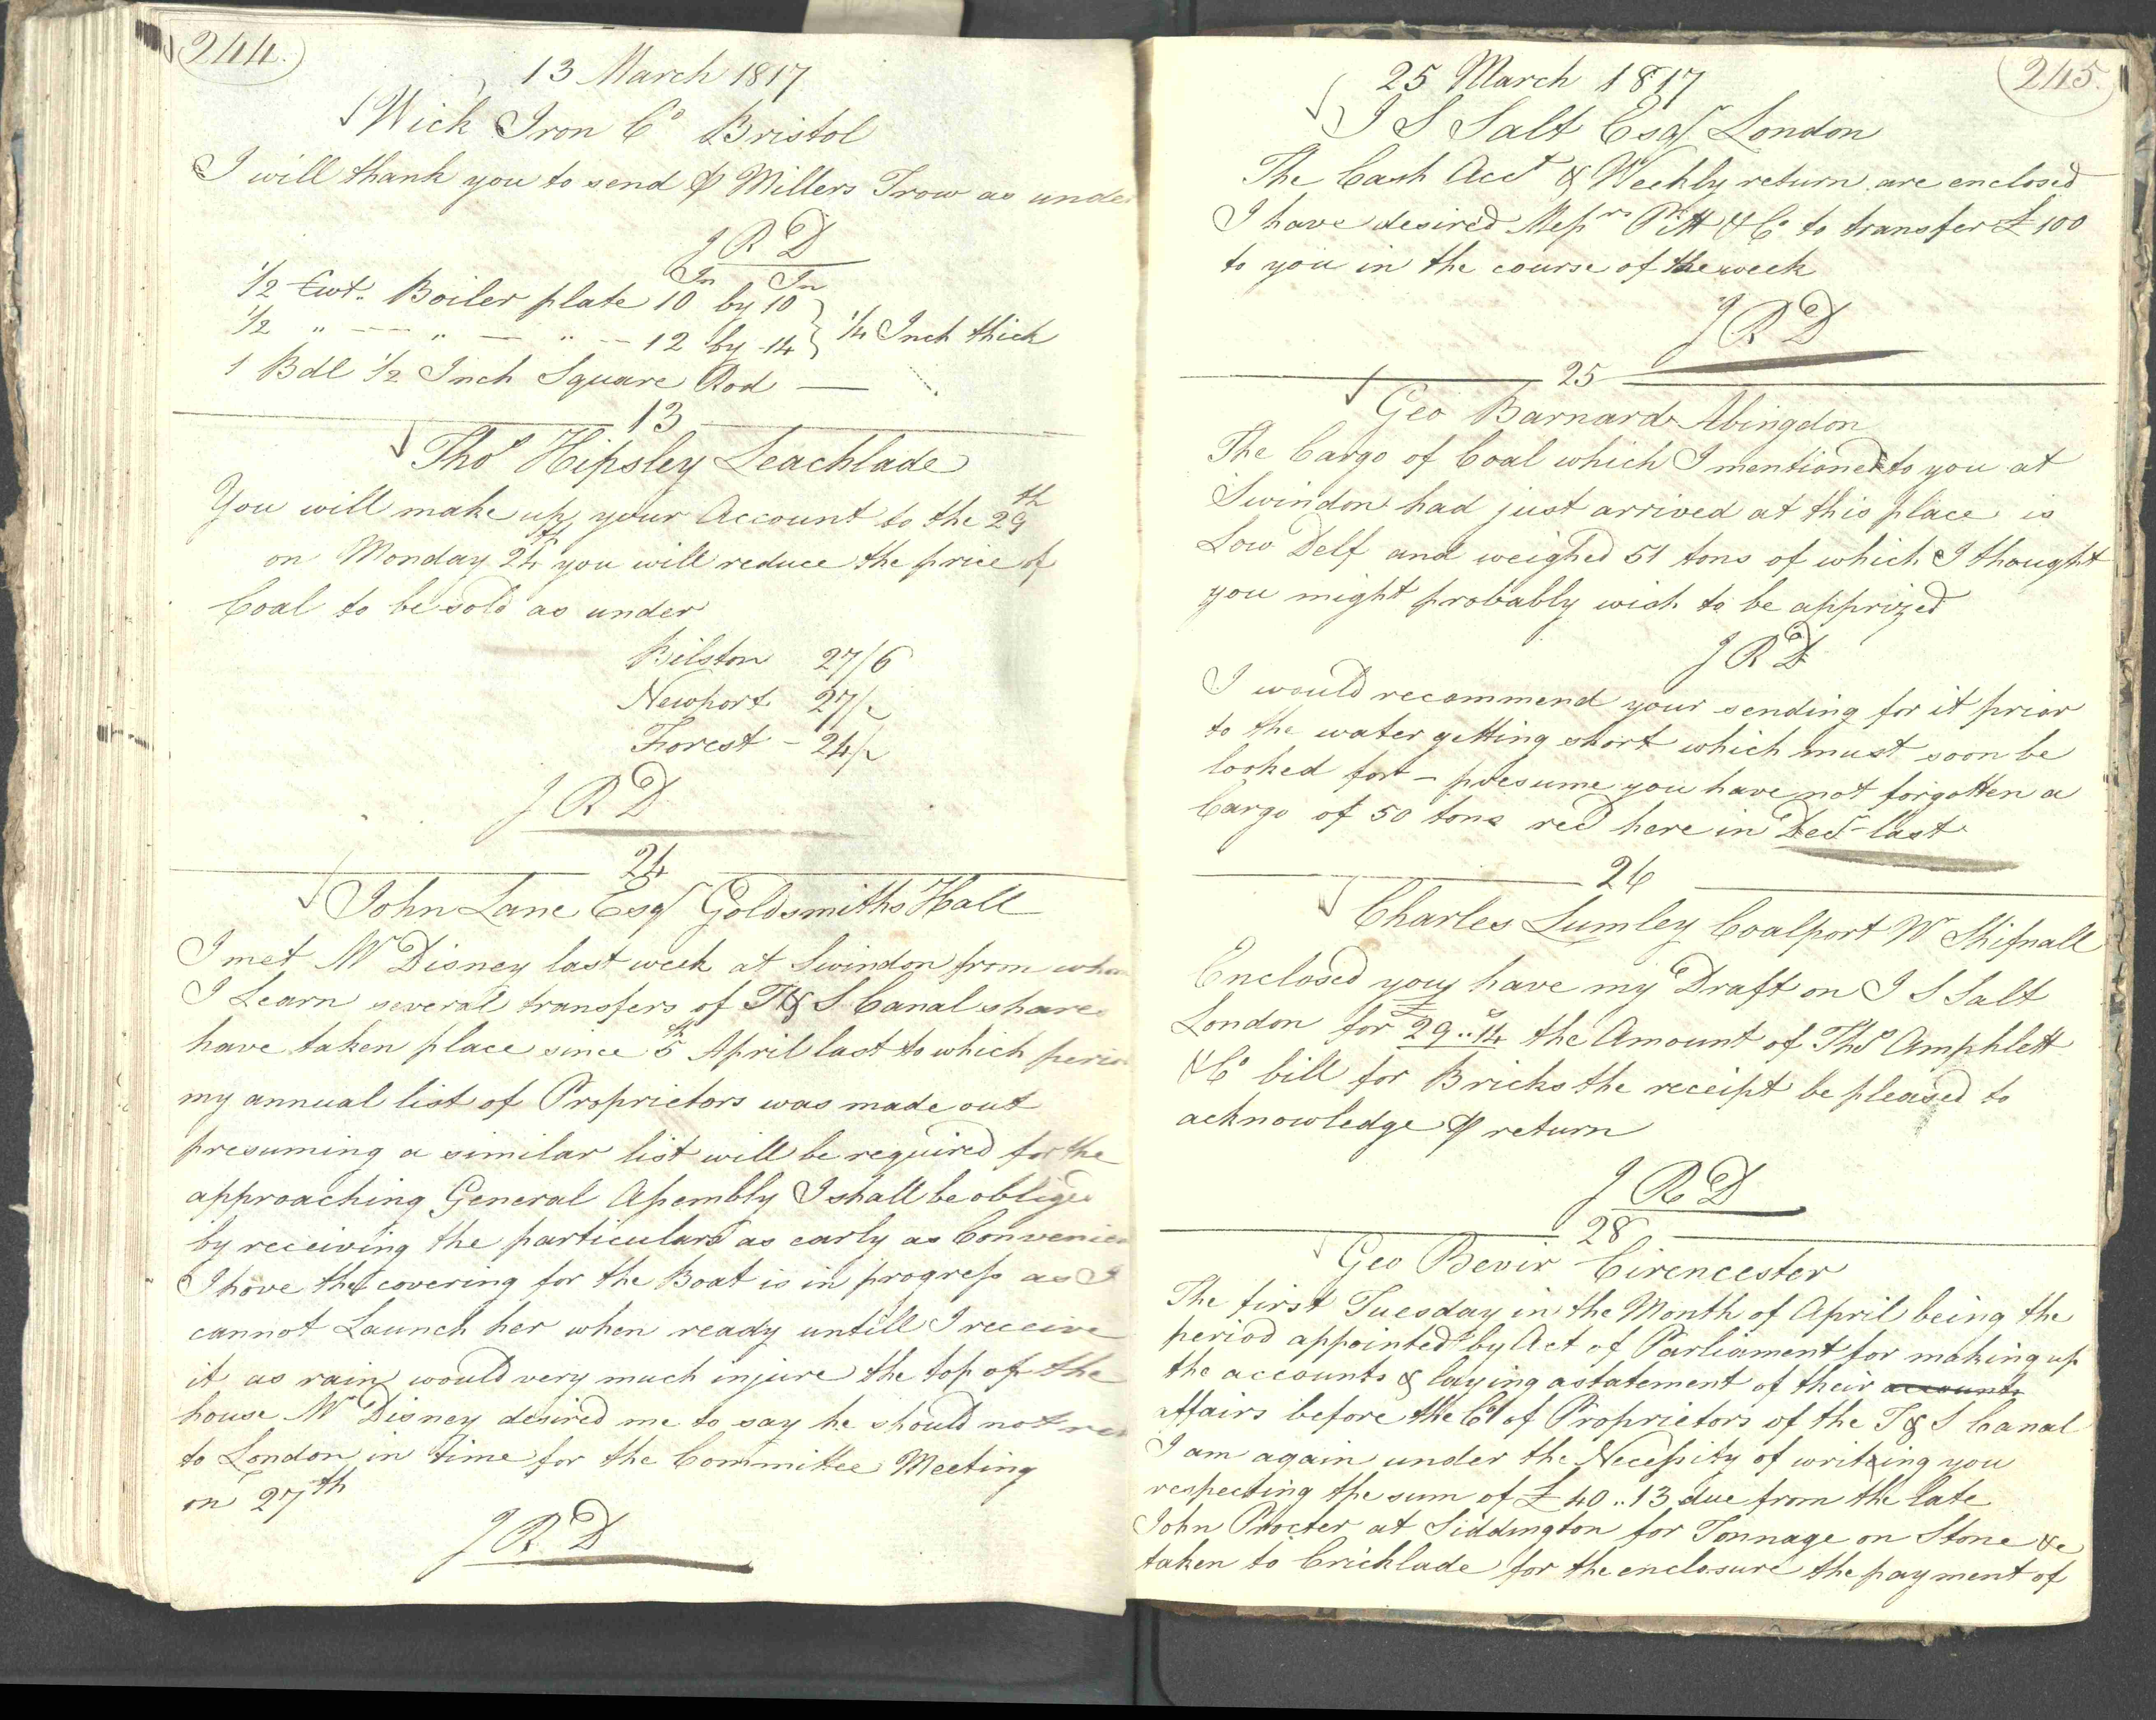 244.
13 March 1817
Wick Iron Co Bristol
I will thank you to send ⅌ Millers Trow as under
J R D
In In
1/2 Cwt. Boiler plate 10 by 10
1/2 " — " — " — 12 by 14 } 1/4 Inch thick
1 Bdl 1/2 Inch Square Rod —
13
Thos Hipsley Leachlade
You will make up your Account to the 29th
on Monday 24th you will reduce the price of
Coal to be sold as under
Bilston 27/6
Newport 27/-
Forest - 24/-
J R D
24
John Lane Esqr Goldsmiths Hall
I met Mr Disney last week at Swindon from
I Learn several transfers of T & S Canal shares
have taken place since 5th April last to which
my annual list of Proprietors was made out
presuming a similar list will be required for the
approaching General Assembly I shall be obliged
by receiving the particulars as early as
I hove the covering for the Boat is in progress as I
cannot Launch her when ready untill I receive
it as rain would very much injure the top of the
house Mr Disney desired me to say he should not
to London in time for the Committee Meeting
on 27th
J R D
245.
25 March 1817
I S Salt Esqr London
The Cash Acct & Weekly return are enclosed
I have desired Messrs Pitt & Co to transfer £100
to you in the course of the week
J R D
25
Geo Barnard Abingdon
The Cargo of Coal which I mentioned to you at
Swindon had just arrived at this place is
Low Delf and weighed 51 tons of which I thought
you might probably wish to be apprized
J R D
I would recommend your sending for it prior
to the water getting short which must soon be
looked for - presume you have not forgotten a
Cargo of 50 tons recd here in Decr last
26
Charles Lumley Coalport W Shifnall
Enclosed you have my Draft on I S Salt
London for £29..14s the Amount of Thos Amphlett
& Co bill for Bricks the receipt be pleased to
acknowledge ⅌ return
J R D
28
Geo Bevir Cirencester
The first Tuesday in the Month of April being the
period appointed by Act of Parliament for making up
the accounts & laying a statement of their accounts
affairs before the Co of Proprietors of the T & S Canal
I am again under the Necessity of writeing you
respecting the sum of £40..13 due from the late
John Procter at Siddington for Tonnage on Stone &c
taken to Cricklade for the enclosure the payment of